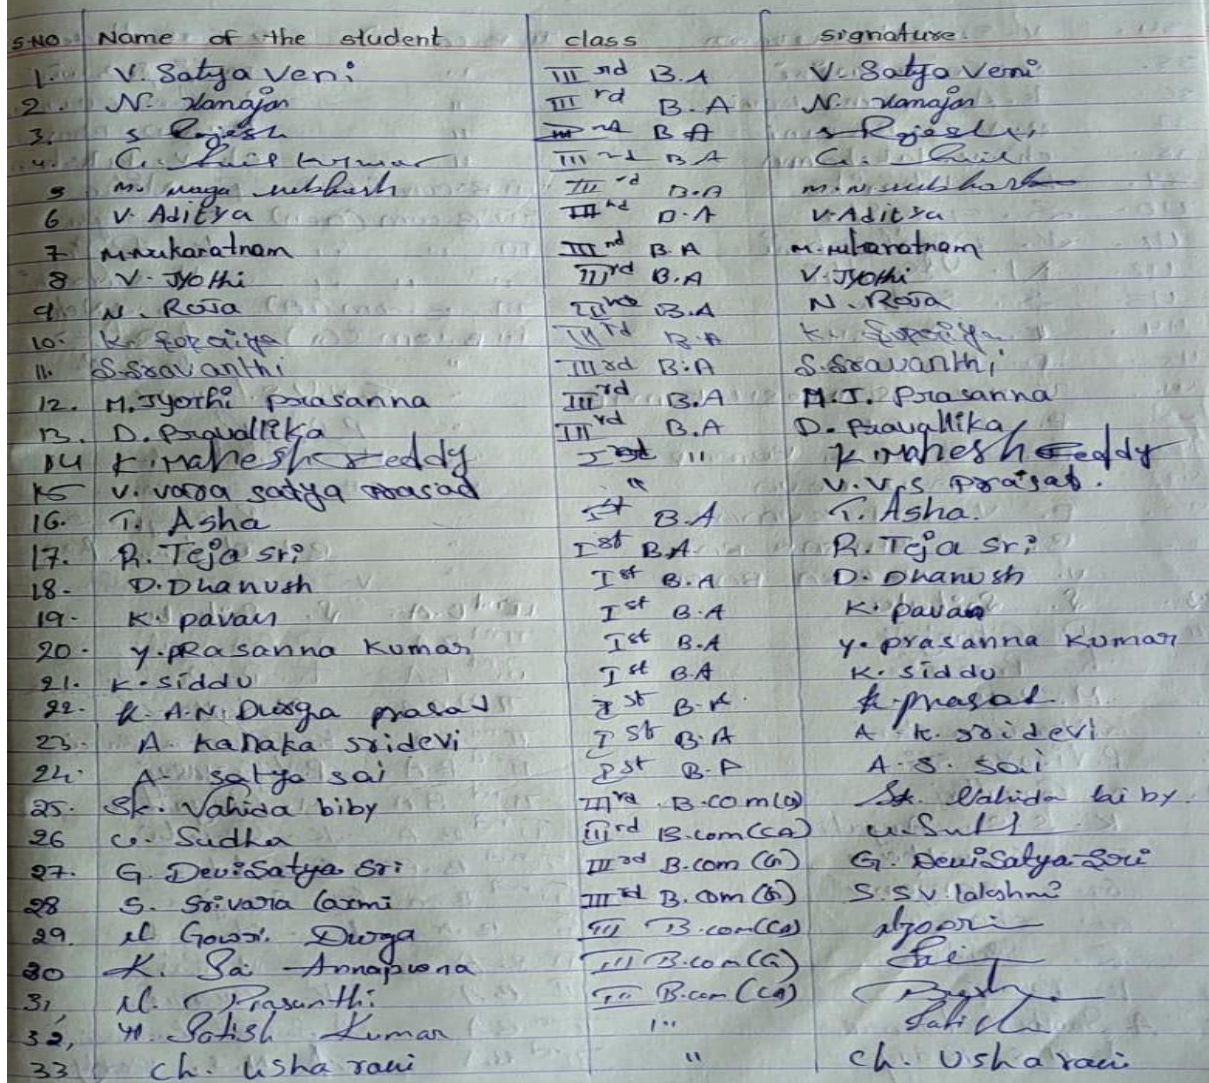 S.NO Name of the student class signature
1. V. Satya Veni III rd B.A V. Satya Veni
2. N. Vanajan III rd B.A N. Vanajan
3. S Rajesh III rd B A S Rajesh
4. G. Kumar III rd B A G.
5 M. Naga Subhash III rd B.A M.N. Subhash
6 V. Aditya III rd B.A V. Aditya
7 M. Nukaratnam III nd B.A M. Nukaratnam
8 V. Jyothi III rd B.A V. Jyothi
9 N. Roja III rd B.A N. Roja
10. K. III rd B.A K.
11. S. Sravanthi III rd B.A S. Sravanthi
12. M. Jyothi prasanna III rd B.A M.J. prasanna
13. D. Pravallika III rd B.A D. Pravallika
14 K. Mahesh reddy I st " K. Mahesh reddy
15 V. vara satya prasad " V.V.S prasad.
16. T. Asha I st B.A T. Asha.
17. R. Teja sri I st B.A R. Teja sri
18. D. Dhanush I st B.A D. Dhanush
19. K. pavan I st B.A K. pavan
20. Y. prasanna kumar I st B.A Y. prasanna kumar
21. K. siddu I st B.A K. siddu
22. K. A.N. Durga prasad I st B.A K. prasad
23. A. Kanaka sridevi I st B.A A. K. sridevi
24. A. satya sai I st B.A A. S. sai
25. Sk. Vahida biby III rd B.com(G) Sk. Vahida biby.
26 G. Sudha III rd B.com(CA)
27. G. Devi Satya Sri III rd B.com (G) G. Devi Satya Sri
28 S. Srivara laxmi III rd B.com (G) S.S.V. lakshmi
29. M Gowri. Durga III B.com(CA)
30 K. Sai Annapurna III B.com(G) Sai
31, M. Prasanthi III B.com (CA)
32, M. Satish Kumar " Satish
33 Ch. Usha rani " Ch. Usha rani